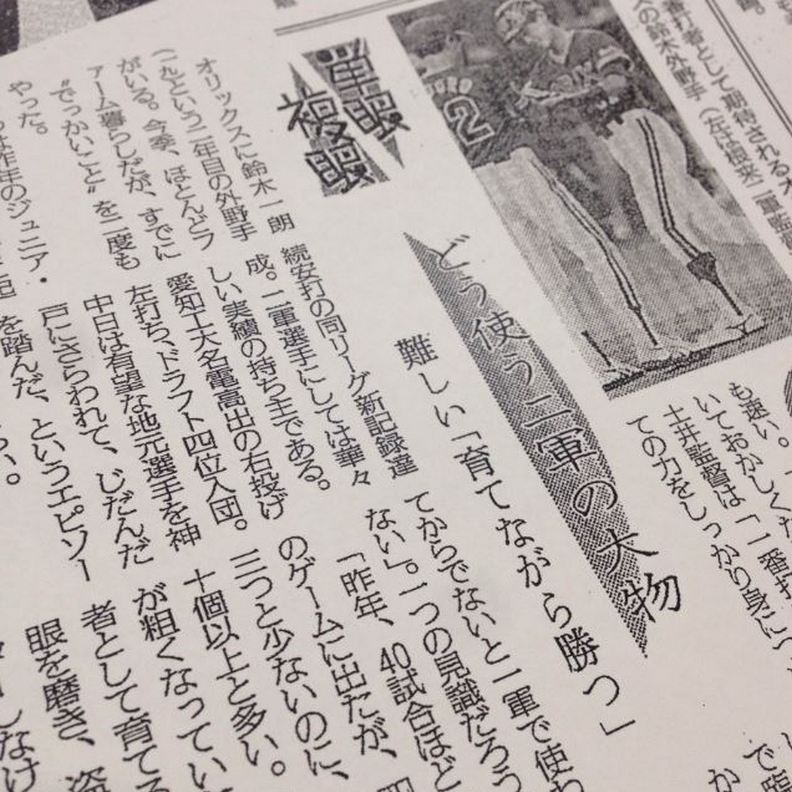 番打者として期待されるオ
の鈴木外野手（左は根来二軍監督
単眼
複眼
どう使う二軍の大物
難しい「育てながら勝つ」
オリックスに鈴木一朗
（一九）という二年目の外野手
がいる。今季、ほとんどフ
ァーム暮らしだが、すでに
“でっかいこと”を二度も
やった。
昨年のジュニア・
続安打の同リーグ新記録達
成。二軍選手にしては華々
しい実績の持ち主である。
愛知工大名電高出の右投げ
左打ち、ドラフト四位入団。
中日は有望な地元選手を神
戸にさらわれて、じだんだ
を踏んだ、というエピソー
も速い。
いておかしくな
土井監督は「一番打
ての力をしっかり身につ
てからでないと一軍で使わ
ない」。一つの見識だろう
「昨年、40試合ほど
のゲームに出たが、四
三つと少ないのに、
十個以上と多い。
が粗くなってい
者として育てる
眼を磨き、盗
しなけ